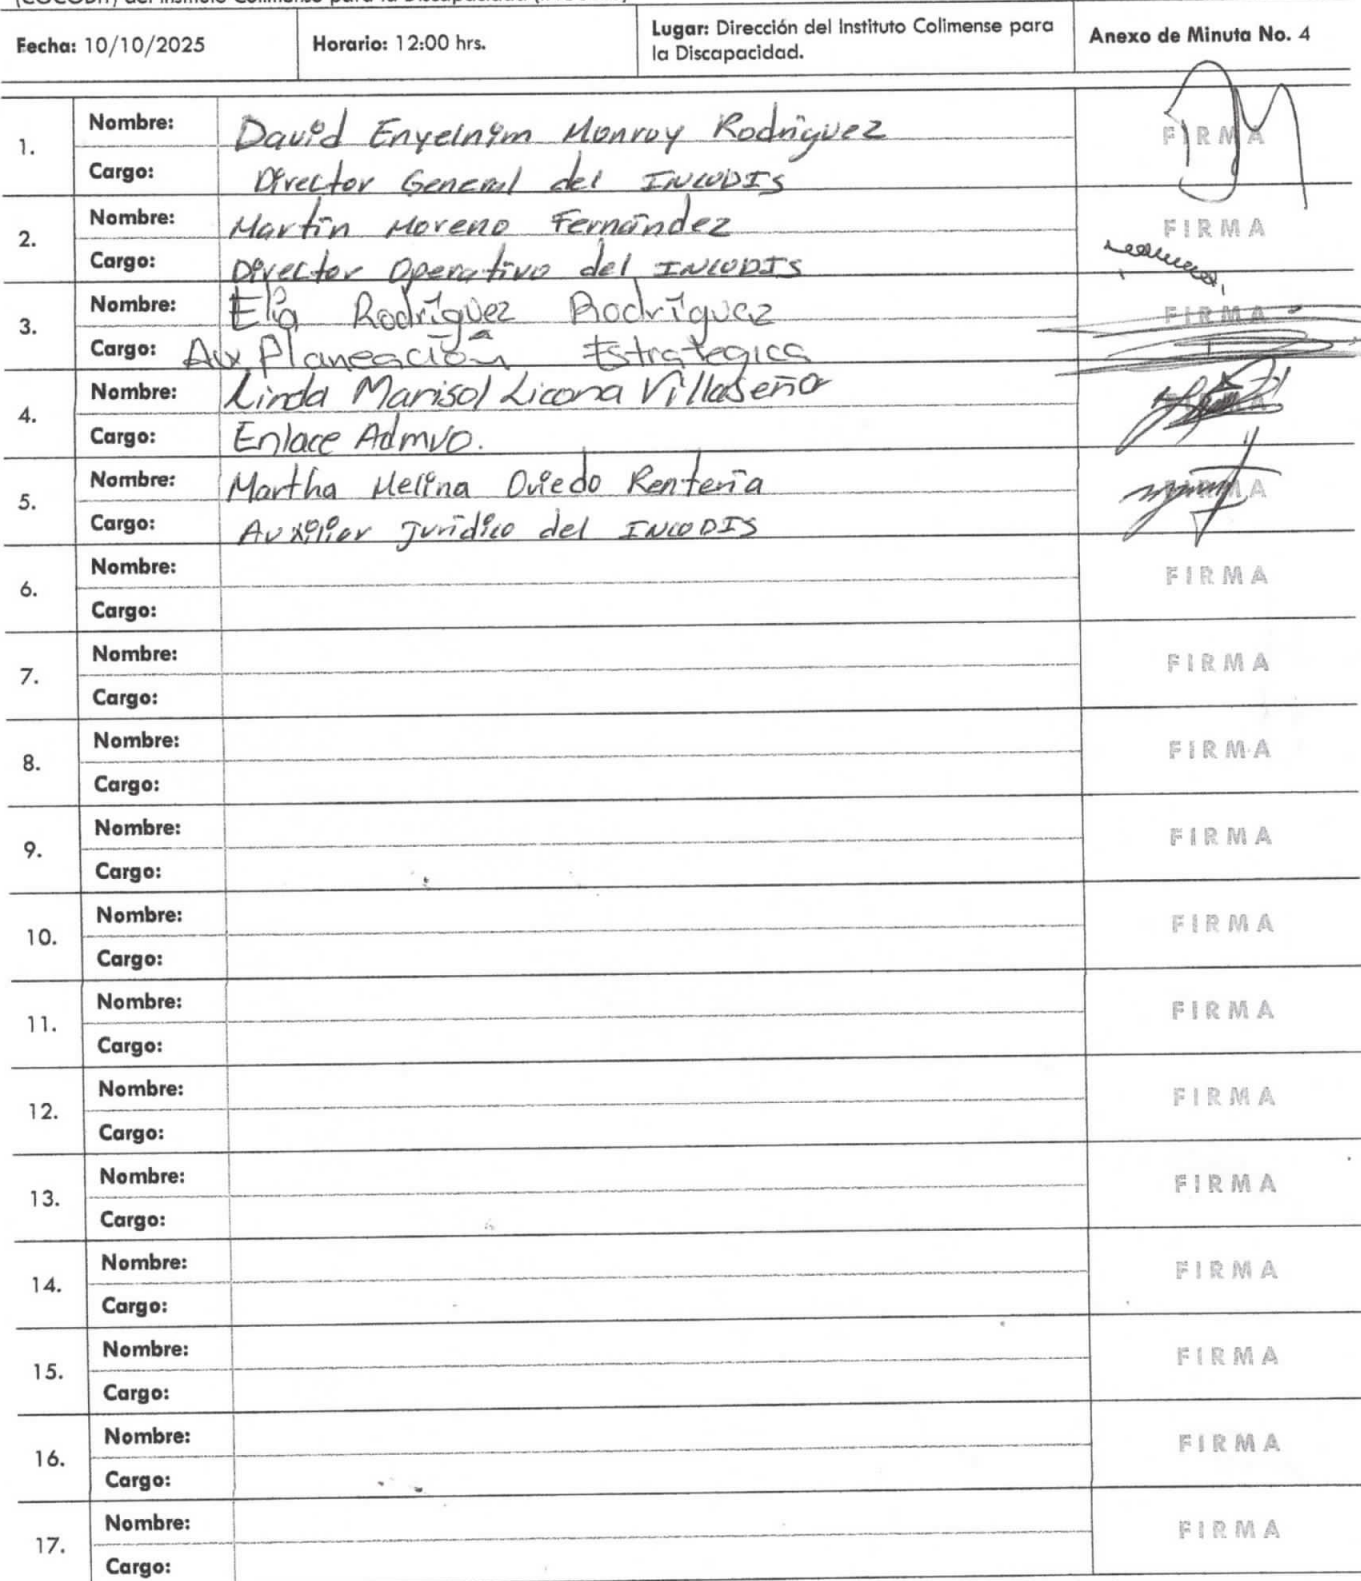 Fecha: 10/10/2025
Horario: 12:00 hrs.
Lugar: Dirección del Instituto Colimense para
la Discapacidad.
Anexo de Minuta No. 4
1.
Nombre: David Enyelnim Monroy Rodríguez
FIRMA
Cargo: Director General del INCODIS
2.
Nombre: Martín Moreno Fernández
FIRMA
Cargo: Director Operativo del INCODIS
3.
Nombre: Elia Rodríguez Rodríguez
FIRMA
Cargo: Aux Planeación Estrategica
4.
Nombre: Linda Marisol Licona Villaseñor
Cargo: Enlace Admvo.
5.
Nombre: Martha Melina Oviedo Rentería
FIRMA
Cargo: Auxiliar Jurídico del INCODIS
6.
Nombre:
FIRMA
Cargo:
7.
Nombre:
FIRMA
Cargo:
8.
Nombre:
FIRMA
Cargo:
9.
Nombre:
FIRMA
Cargo:
10.
Nombre:
FIRMA
Cargo:
11.
Nombre:
FIRMA
Cargo:
12.
Nombre:
FIRMA
Cargo:
13.
Nombre:
FIRMA
Cargo:
14.
Nombre:
FIRMA
Cargo:
15.
Nombre:
FIRMA
Cargo:
16.
Nombre:
FIRMA
Cargo:
17.
Nombre:
FIRMA
Cargo: